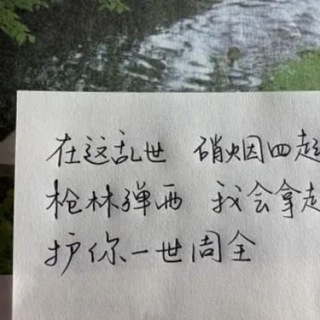 在这乱世 硝烟四起
枪林弹雨 我会拿起
护你一世周全